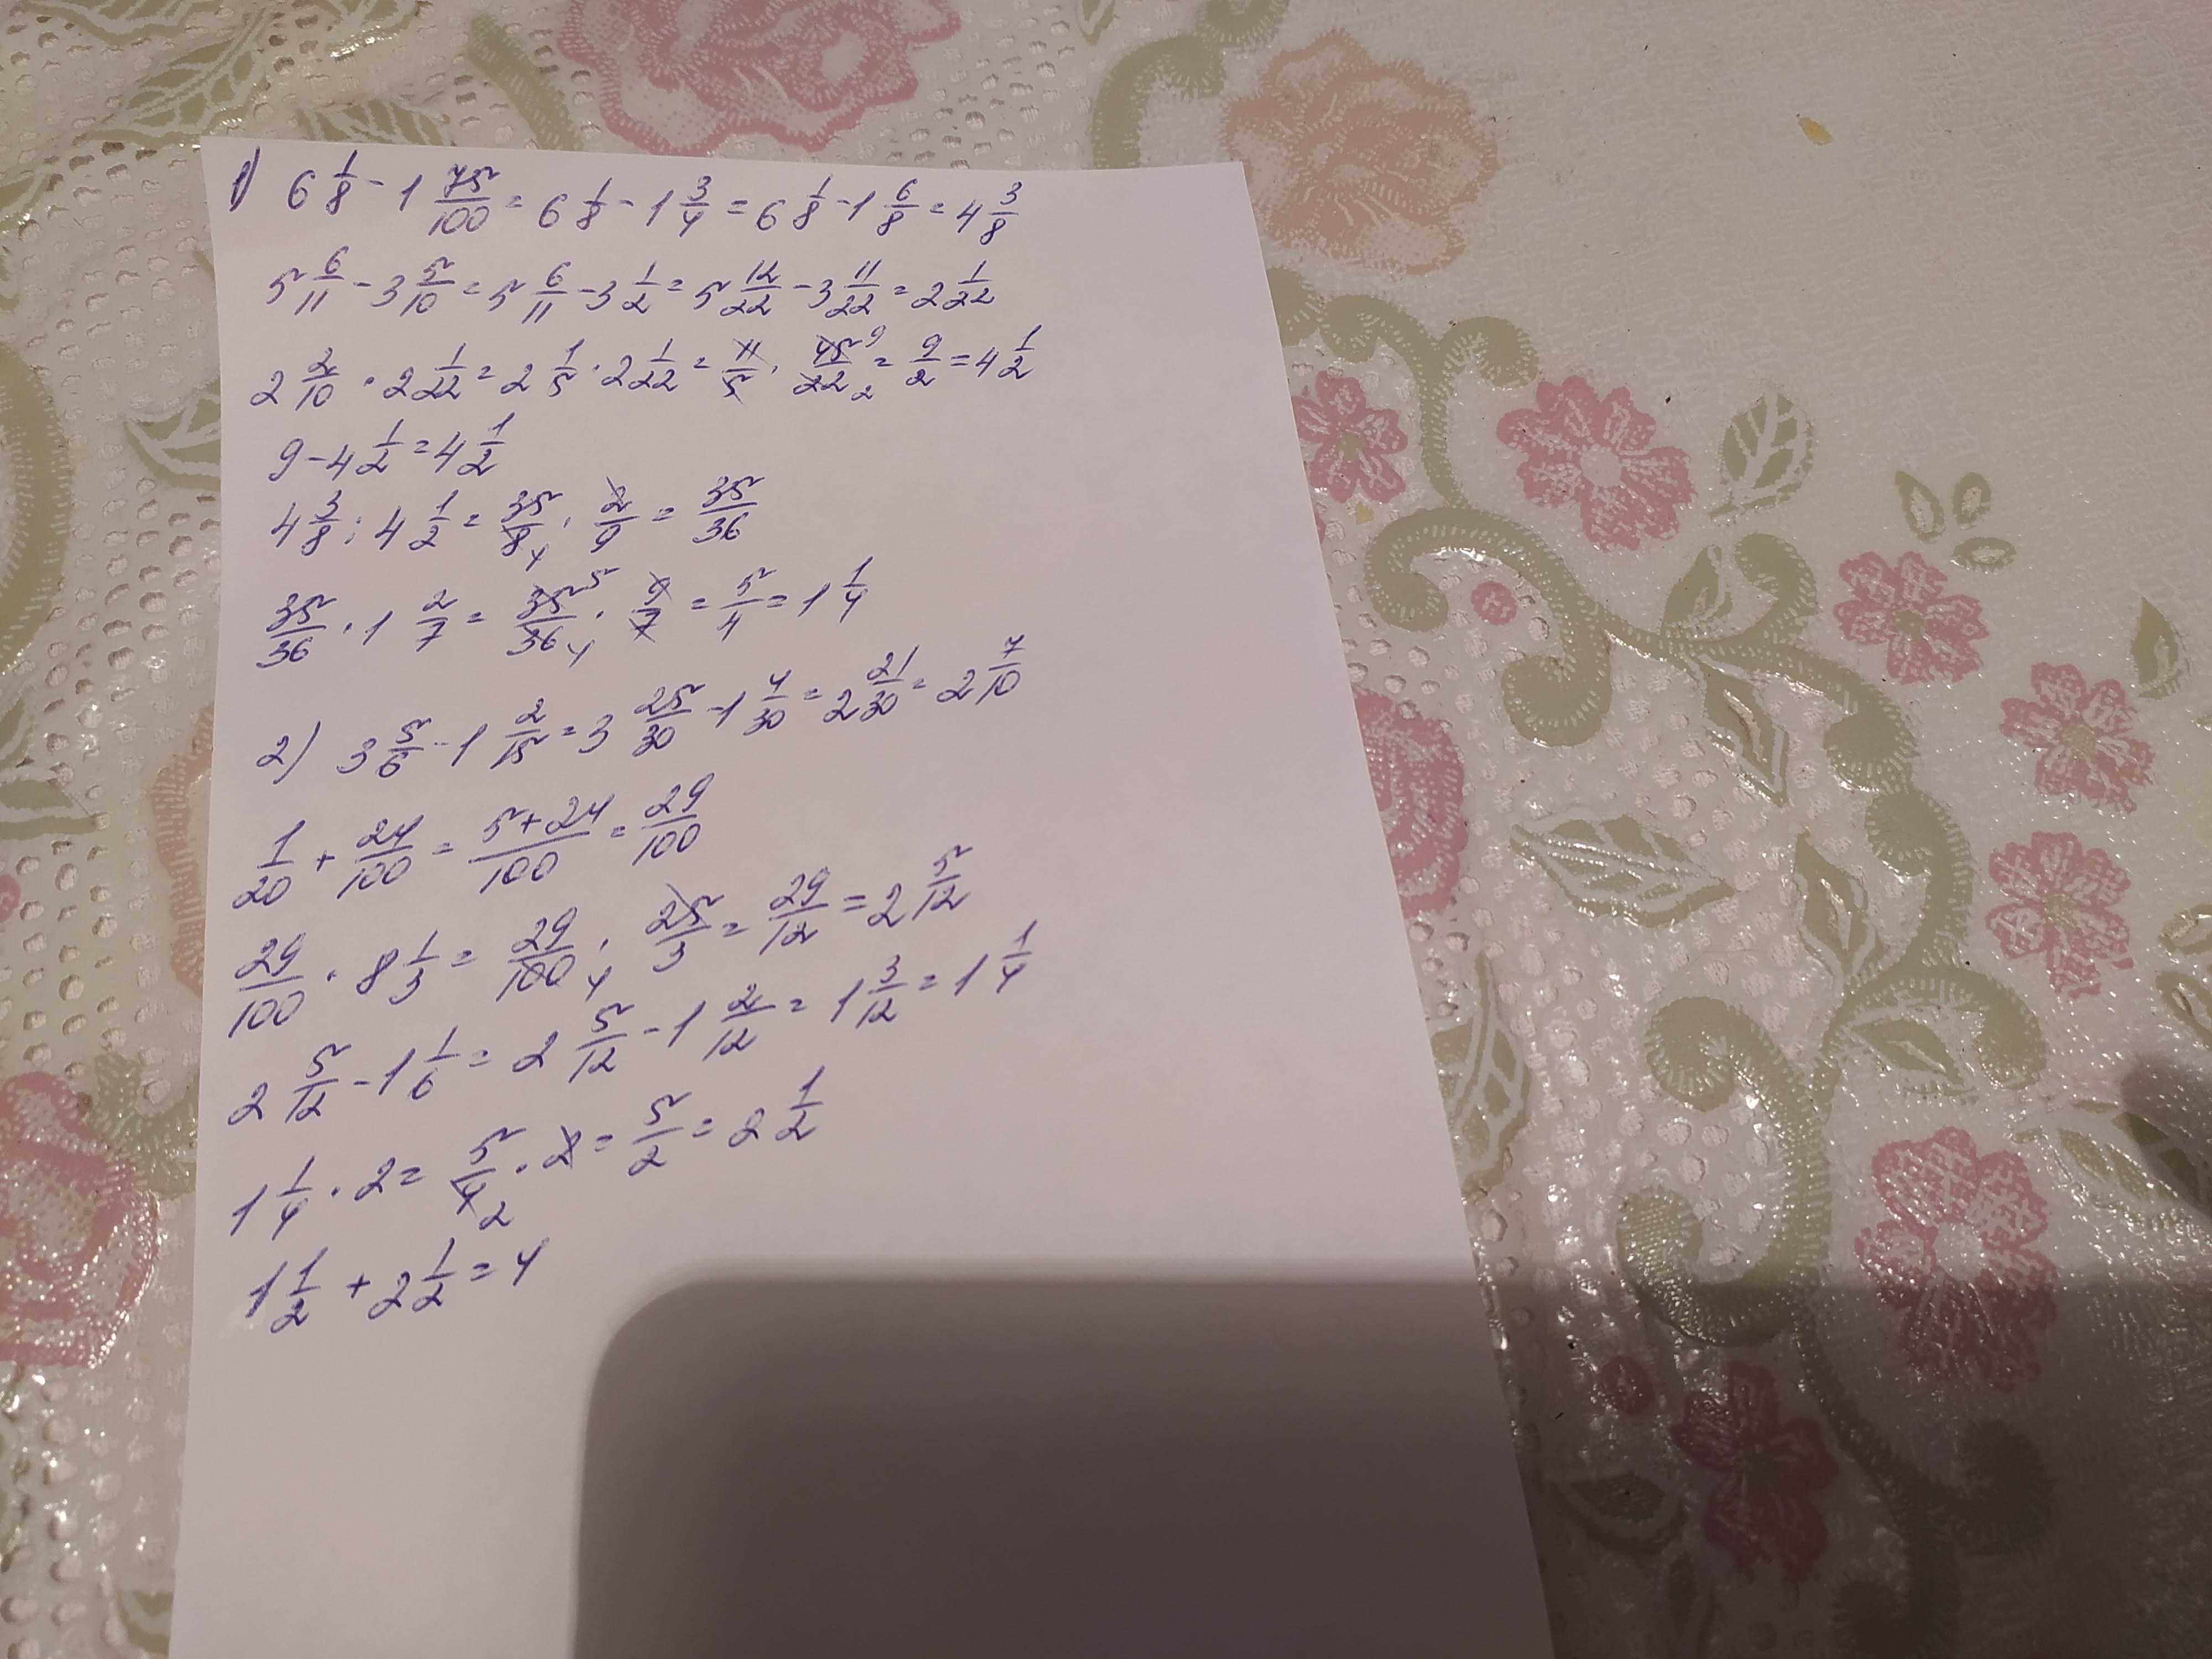 1) 6 1/8 - 1 75/100 = 6 1/8 - 1 3/4 = 6 1/8 - 1 6/8 = 4 3/8
5 6/11 - 3 5/10 = 5 6/11 - 3 1/2 = 5 12/22 - 3 11/22 = 2 1/22
2 2/10 · 2 1/22 = 2 1/5 · 2 1/22 = 11/5 · 45 9/22 2 = 9/2 = 4 1/2
9 - 4 1/2 = 4 1/2
4 3/8 : 4 1/2 = 35/8 4 · 2/9 = 35/36
35/36 · 1 2/7 = 35 5/36 4 · 9/7 = 5/4 = 1 1/4
2) 3 5/6 - 1 2/15 = 3 25/30 - 1 4/30 = 2 21/30 = 2 7/10
1/20 + 24/100 = 5+24/100 = 29/100
29/100 · 8 1/3 = 29/100 4 · 25/3 = 29/12 = 2 5/12
2 5/12 - 1 1/6 = 2 5/12 - 1 2/12 = 1 3/12 = 1 1/4
1 1/4 · 2 = 5/4 2 · 2 = 5/2 = 2 1/2
1 1/2 + 2 1/2 = 4